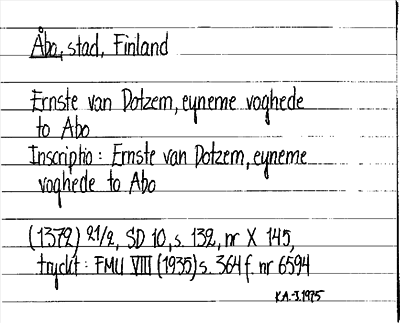 Åbo, stad, Finland
Ernste van Dotzem, eyneme voghede
to Abo
Inscriptio: Ernste van Dotzem, eyneme
voghede to Abo
(1372) 21/2, SD 10, s. 132, nr X 145,
tryckt: FMU VIII (1935) s. 364 f. nr 6594
K.A.-J. 1975